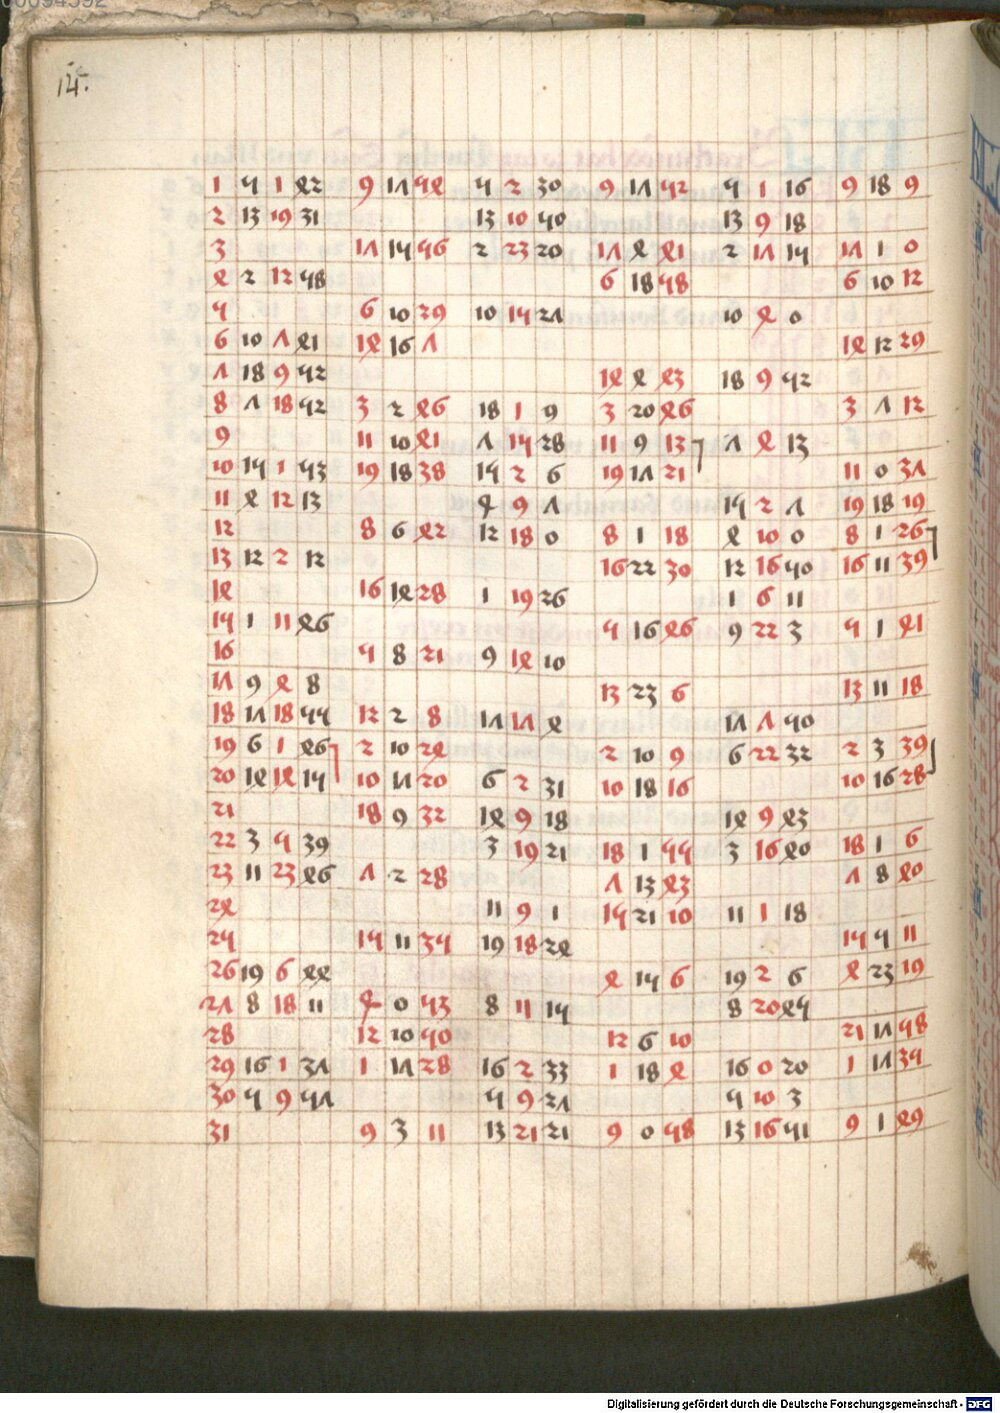 1 5 1 42 9 17 54 5 2 30 9 17 52 5 1 16 9 18 9
2 13 19 31 13 10 50 13 9 18
3 17 15 56 2 23 20 17 4 41 2 17 15 17 1 0
4 2 12 58 6 18 58 6 10 12
5 6 10 29 10 15 27 10 4 0
6 10 7 41 14 16 7 14 12 29
7 18 9 52 14 4 43 18 9 52
8 7 18 52 3 2 46 18 1 9 3 20 46 3 7 12
9 11 10 41 7 15 28 11 9 13 7 4 13
10 15 1 53 19 18 38 15 2 6 19 17 21 11 0 37
11 4 12 13 4 9 7 15 2 7 19 18 19
12 8 6 42 12 18 0 8 1 18 4 10 0 8 1 26
13 12 2 12 16 22 30 12 16 50 16 11 39
14 16 14 28 1 19 26 1 6 11
15 1 11 46 5 16 46 9 22 3 5 1 41
16 5 8 21 9 14 10
17 9 4 8 13 23 6 13 11 18
18 17 18 55 12 2 8 17 17 4 17 7 50
19 6 1 46 2 10 24 2 10 9 6 22 32 2 3 39
20 14 14 15 10 17 20 6 2 31 10 18 16 10 16 28
21 18 9 32 14 9 18 14 9 43
22 3 5 39 3 19 21 18 1 55 3 16 40 18 1 6
23 11 23 46 7 2 28 7 13 43 7 8 40
24 11 9 1 15 21 10 11 1 18
25 15 11 35 19 18 24 15 5 11
26 19 6 44 4 15 6 19 2 6 4 23 19
27 8 18 11 4 0 53 8 11 15 8 20 45
28 12 10 50 12 6 10 21 17 58
29 16 1 37 1 17 28 16 2 33 1 18 4 16 0 20 1 17 35
30 5 9 57 5 9 27 5 10 3
31 9 3 11 13 21 21 9 0 58 13 16 51 9 1 49
Digitalisierung gefördert durch die Deutsche Forschungsgemeinschaft - DFG